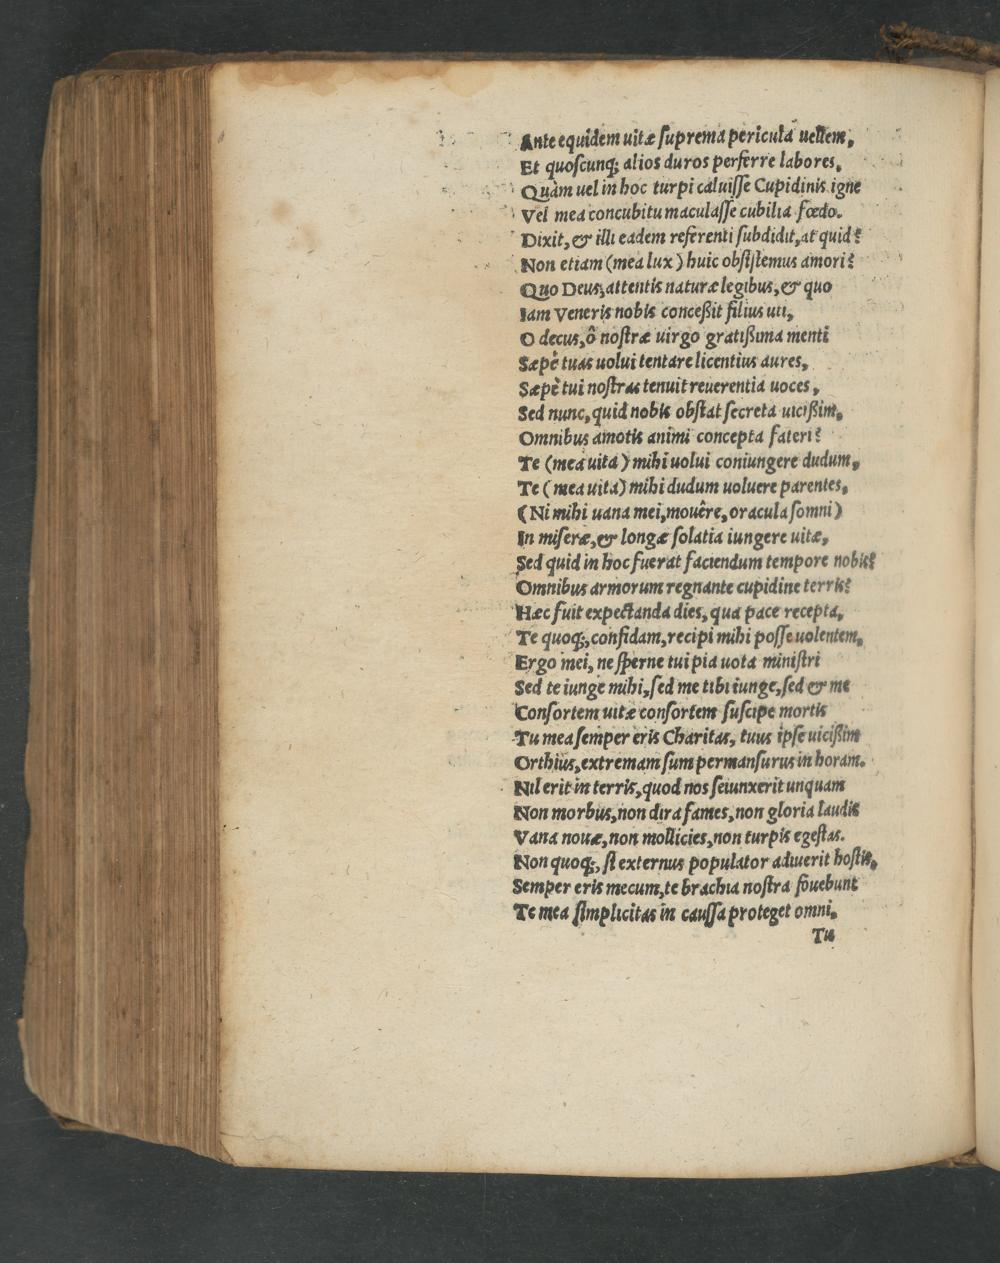 Ante equidem uitæ suprema pericula uellem,
Et quoscunq; alios duros perferre labores,
Quàm uel in hoc turpi caluisse Cupidinis igne
Vel mea concubitu maculasse cubilia fœdo.
Dixit, & illi eadem referenti subdidit, at quid?
Non etiam (mea lux) huic obsistemus amori?
Quo Deus, attentis naturæ legibus, & quo
Iam Veneris nobis conceßit filius uti,
O decus, ô nostræ uirgo gratißima menti
Sæpè tuas uolui tentare licentius aures,
Sæpè tui nostras tenuit reuerentia uoces,
Sed nunc, quid nobis obstat secreta uicißim,
Omnibus amotis animi concepta fateri?
Te (mea uita) mihi uolui coniungere dudum,
Te (mea uita) mihi dudum uoluere parentes,
(Ni mihi uana mei, mouêre, oracula somni)
In miseræ, & longæ solatia iungere uitæ,
Sed quid in hoc fuerat faciendum tempore nobis?
Omnibus armorum regnante cupidine terris?
Hæc fuit expectanda dies, qua pace recepta,
Te quoq;, confidam, recipi mihi posse uolentem,
Ergo mei, ne sperne tui pia uota ministri
Sed te iunge mihi, sed me tibi iunge, sed & me
Consortem uitæ consortem suscipe mortis
Tu mea semper eris Charitas, tuus ipse uicißim
Orthius, extremam sum permansurus in horam.
Nil erit in terris, quod nos seiunxerit unquam
Non morbus, non dira fames, non gloria laudis
Vana nouæ, non mollicies, non turpis egestas.
Non quoq;, si externus populator aduerit hostis,
Semper eris mecum, te brachia nostra fouebunt
Te mea simplicitas in caussa proteget omni,
Tu